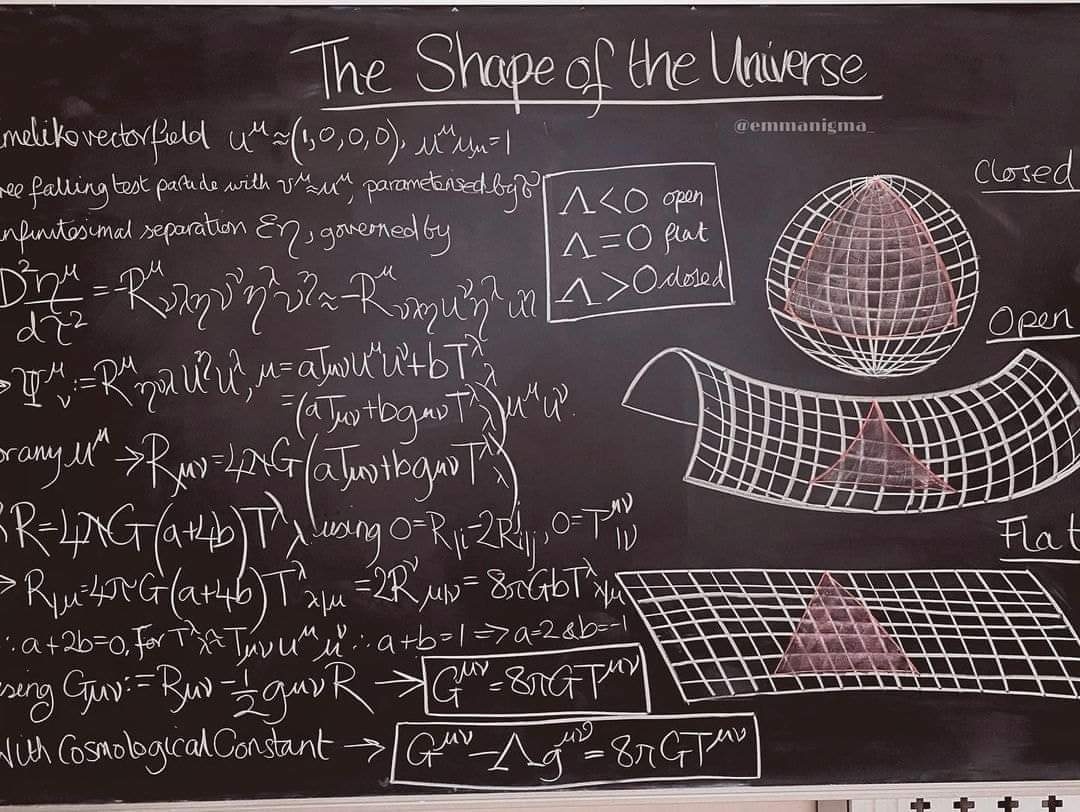 The Shape of the Universe
@emmanigma_
imelike vector field u^μ≈(1,0,0,0), u^μu_μ=1
ree falling test particle with v^μ≈u^μ, parameterised by τ
nfinitesimal separation εη, governed by
D²η^μ/dτ² = -R^μ_νλη v^ν η^λ v^η ≈ -R^μ_νλη u^ν η^λ u^η
→ Ψ^μ_ν := R^μ_ηνλ u^η u^λ, μ = aT_μν u^μ u^ν + bT^λ_λ
= (aT_μν + bg_μν T^λ_λ) u^μ u^ν.
or any u^μ → R_μν = 4πG (aT_μν + bg_μν T^λ_λ)
R = 4πG (a+4b) T^λ_λ using 0 = R_|i - 2R^j_i|j, 0 = T^μν_|ν
→ R_|μ = 4πG (a+4b) T^λ_λ|μ = 2R^ν_μ|ν = 8πGbT^λ_λ|μ
∴ a+2b=0, for T^λ_λ ≈ T_μν u^μ u^ν ∴ a+b=1 ⇒ a=2 & b=-1
using G_μν := R_μν - 1/2 g_μν R → G^μν = 8πGT^μν
With Cosmological Constant → G^μν - Λg^μν = 8πGT^μν
Λ<0 open
Λ=0 flat
Λ>0 closed
Closed
Open
Flat